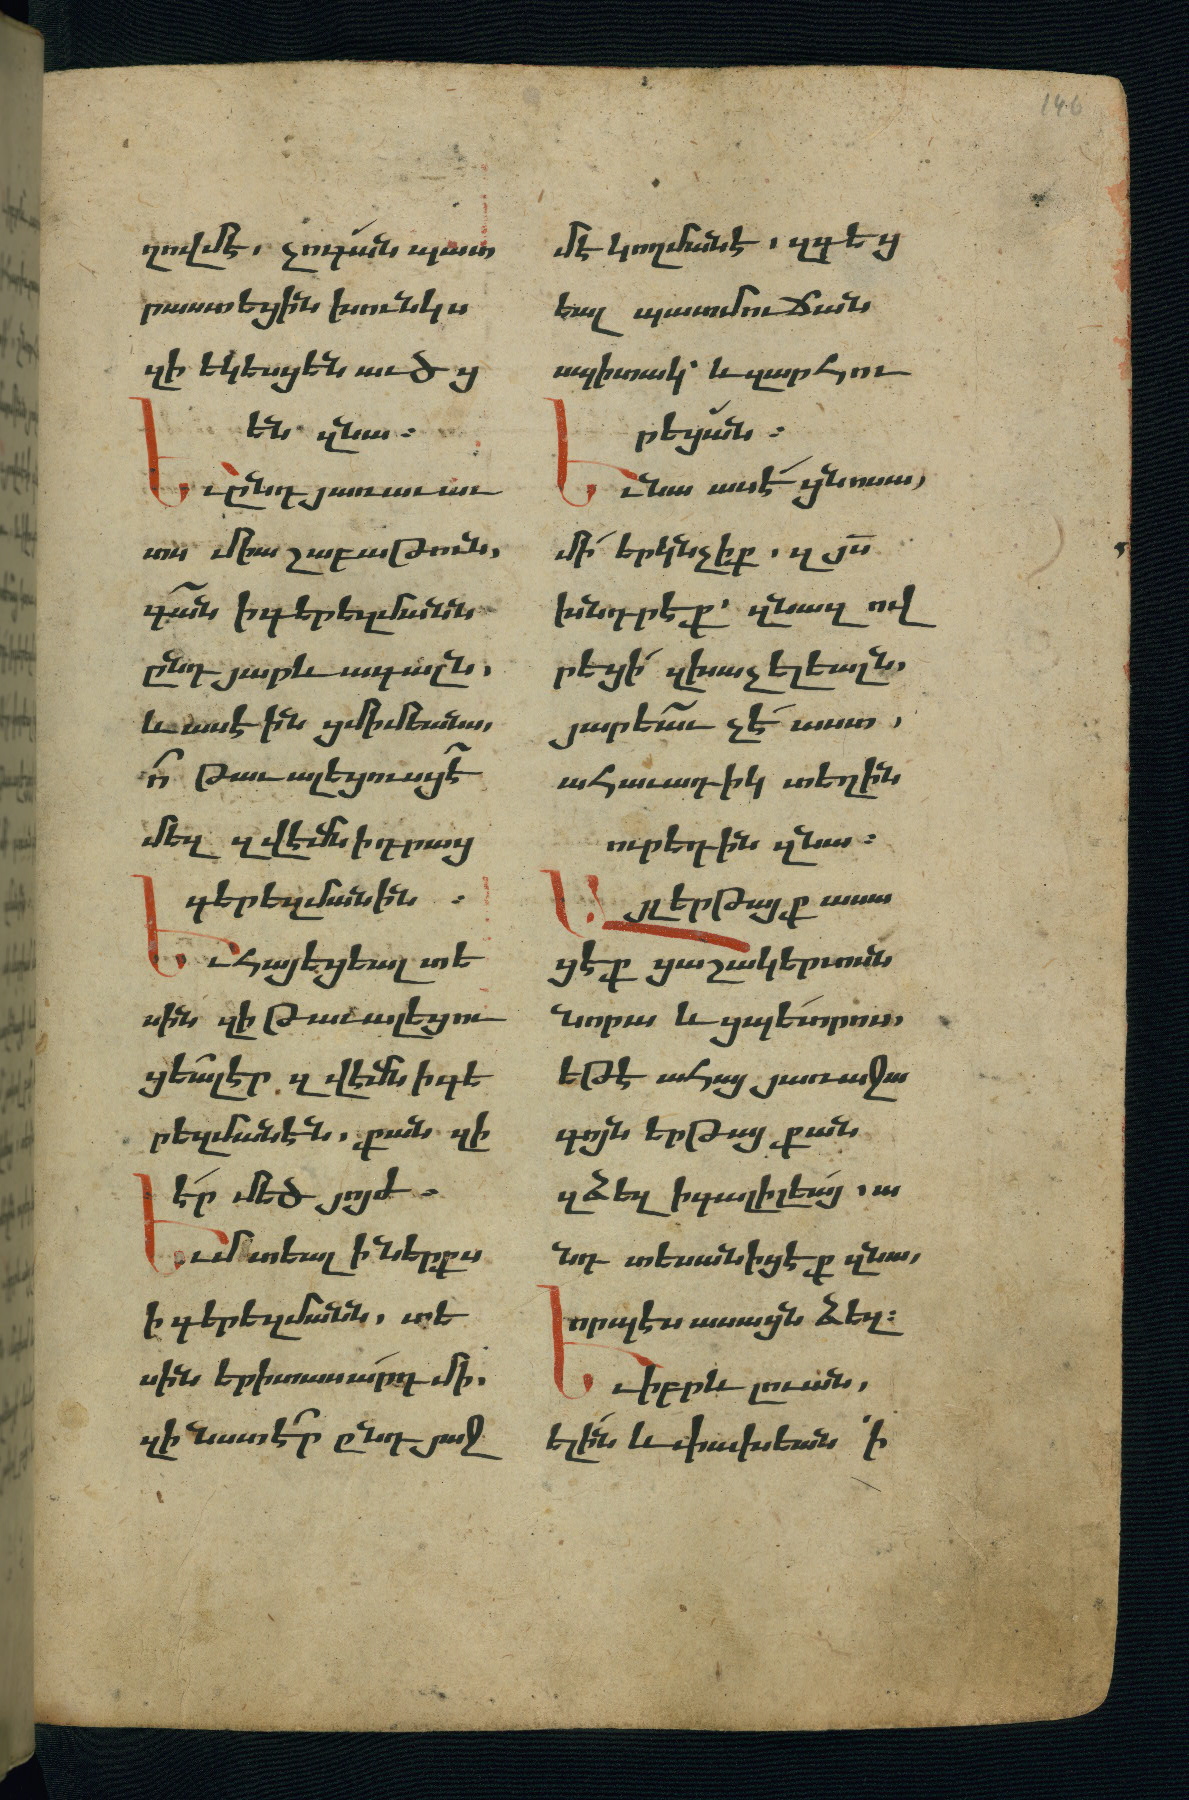 146
ղովմէ, չոգան պատ
րաստեցին խունկս
զի եկեսցեն աւծց
են զնա։
Եւ ընդ յառաւաւ
տս միա շաբաթուն,
գան ի գերեզմանն
ընդ յարև ագալն,
և ասէին ցմիմեանս,
ո՞ թաւալեցուսցէ
մեզ զվէմն ի դրաց
գերեզմանին ։
Եւ հայեցեալ տե
սին զի թաւալեցու
ցեալ էր զվէմն ի գե
րեզմանէն, քան զի
էր մեծ յոյժ.
Եւ մտեալ ի ներքս
ի գերեզմանն, տե
սին երիտասարդ մի.
զի նստէր ընդ յաջ
մէ կողմանէ, զգեց
եալ պատմուճան
սպիտակ՝ և զարհու
րեցան ։
Եւ նա ասէ ցնոսա,
մի՛ երկնչիք, զ յս
խնդրէք՝ զնազով
րեցի զխաչելեալն,
յարեաւ չէ՛ աստ,
ահաւադիկ տեղին
ուր եդին զնա։
Այլ երթայք ասա
ցէք ցաշակերտսն
նորա և ցպետրոս,
եթէ ահայ յառաջա
գոյն երթայ քան
զձեզ ի գալիլեայ, ա
նդ տեսանիցէք զնա,
որպէս ասացն ձեզ։
Եւ իբրև լուան,
ելին և փախեան ՚ի